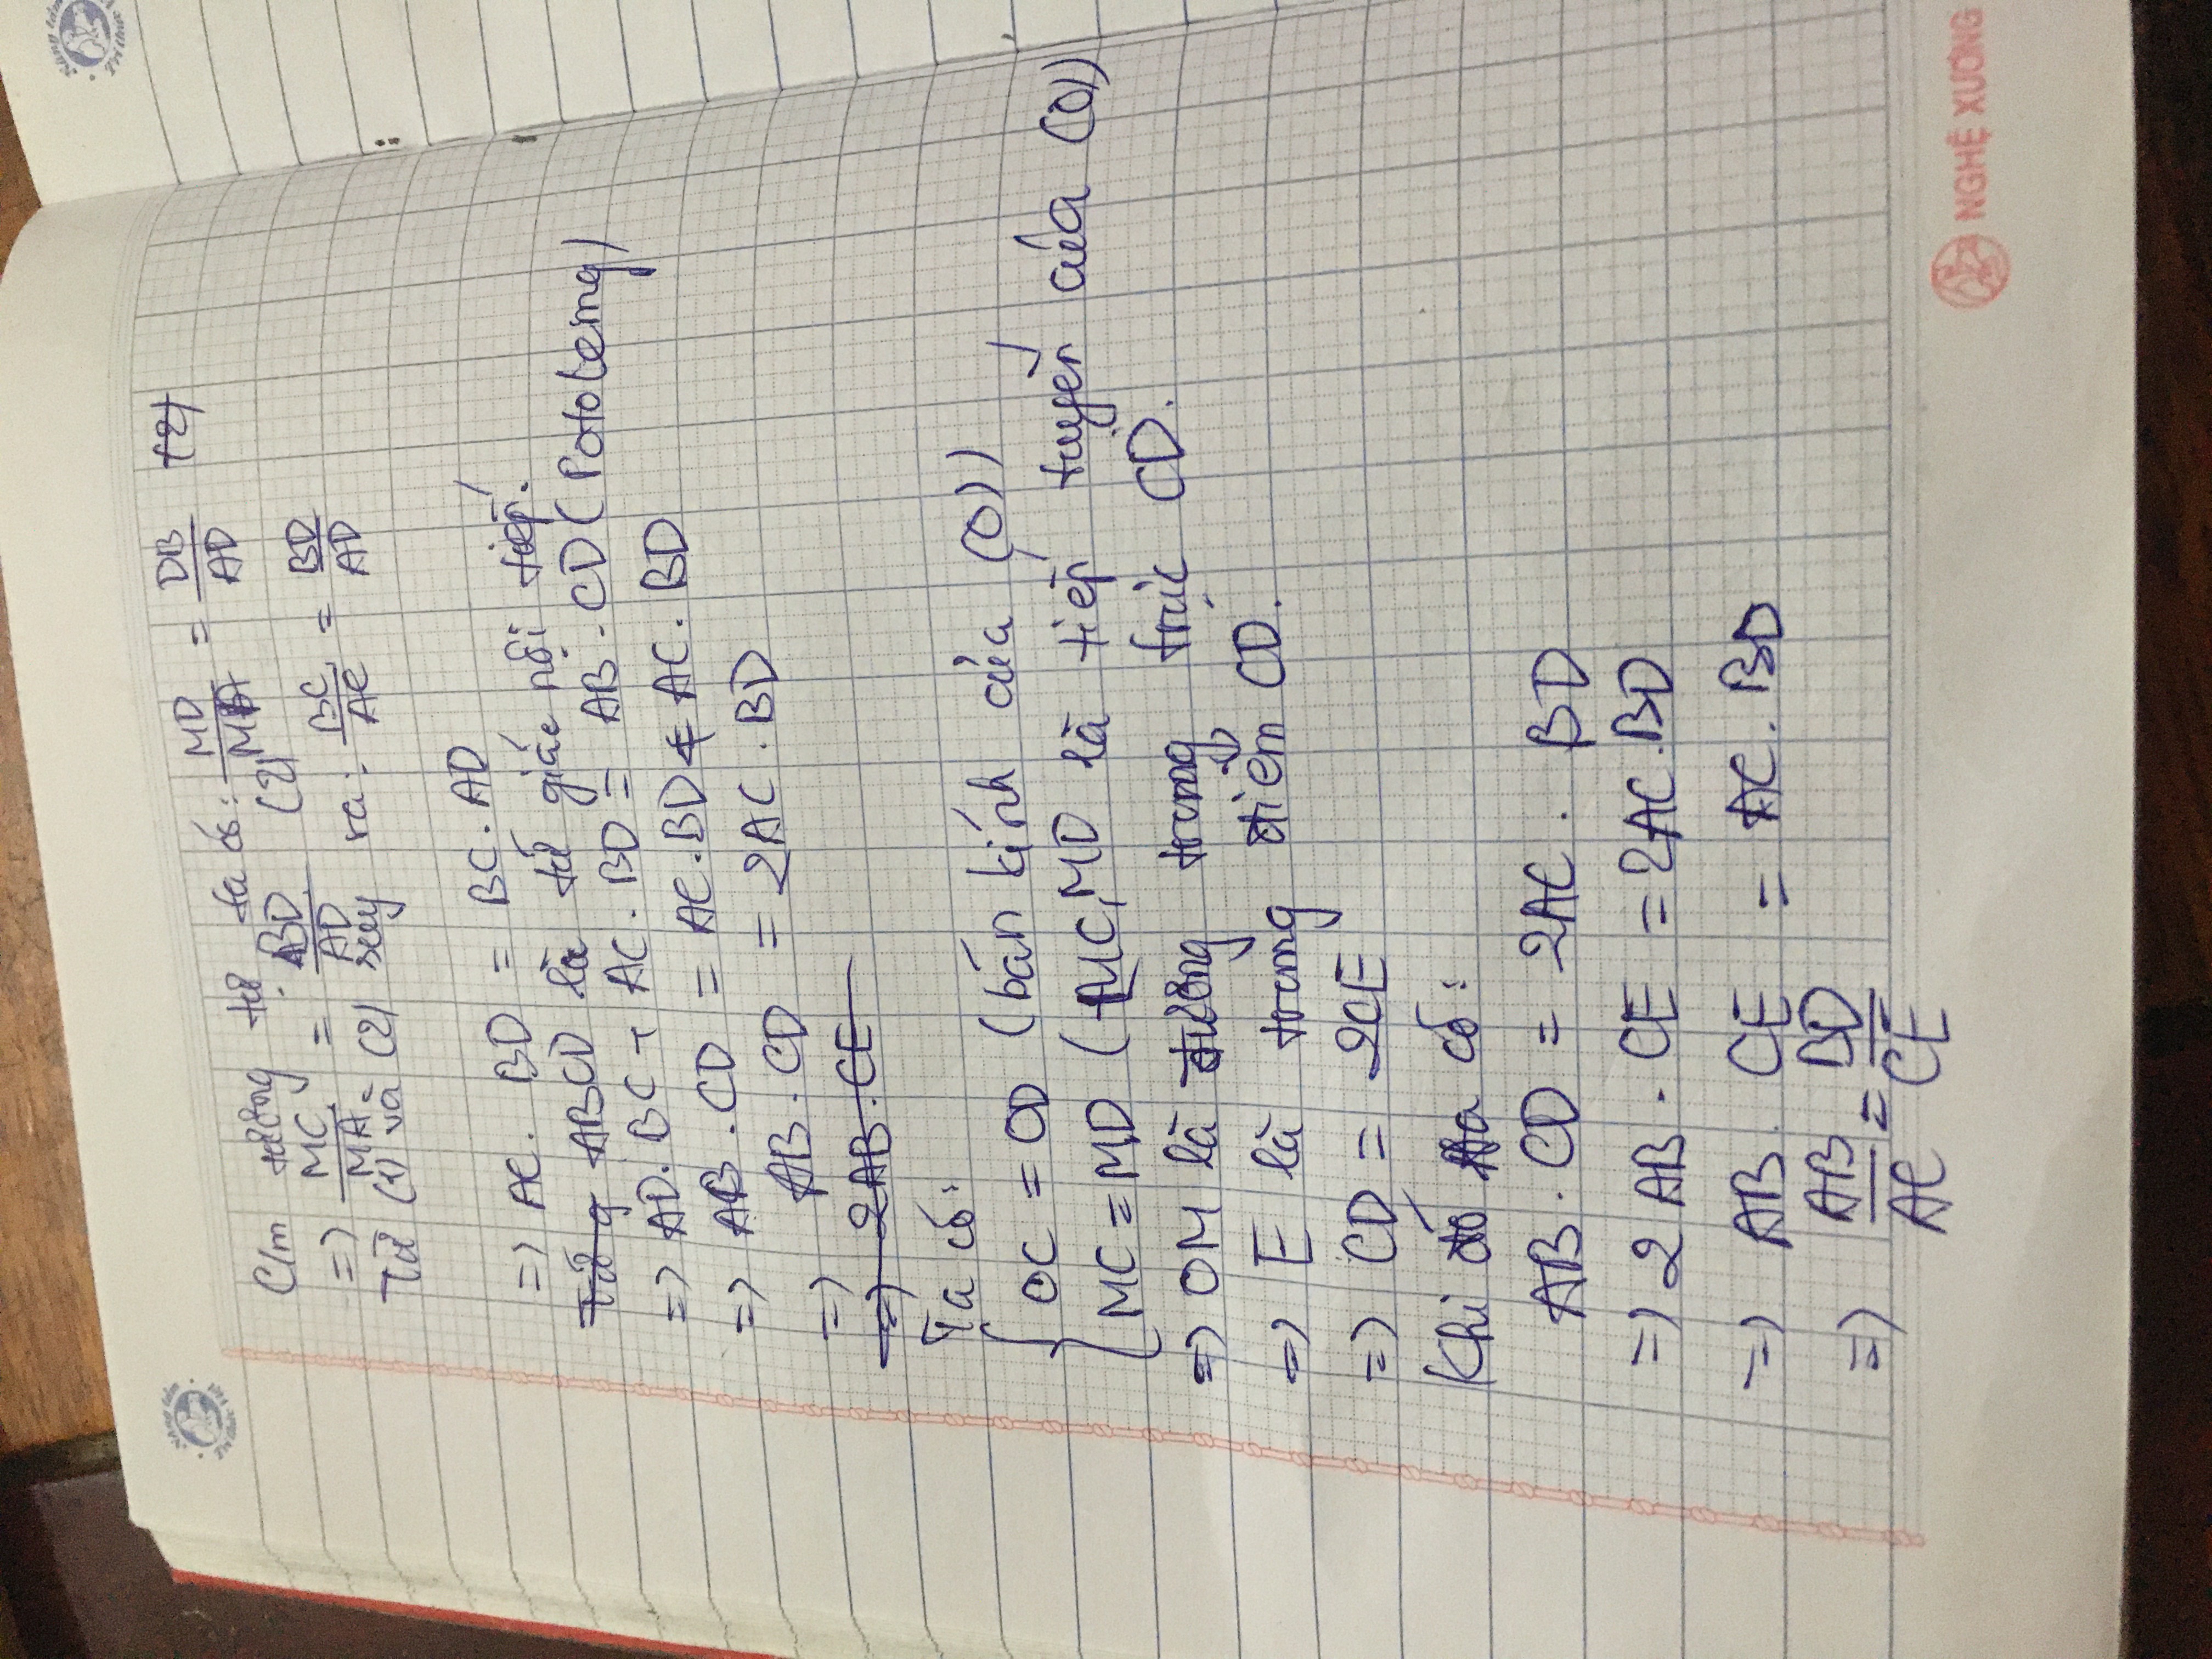 Nâng tầm
Tri thức Việt
Nâng tầm
Tri thức V
C/m tương tự ta có: MD/MA = DB/AD (2)
=> MC/MA = BD/AD (2)
Từ (1) và (2) suy ra: BC/AC = BD/AD
=> AC. BD = BC. AD
Tứ g ABCD là tứ giác nội tiếp.
=> AD. BC + AC. BD = AB. CD (Potolemy)
=> AB. CD = AC. BD + AC. BD
=> AB. CD = 2AC. BD
=> 2AB. CE
Ta có:
OC = OD (bán kính của (O))
MC = MD (MC, MD là tiếp tuyến của (O))
=> OM là đường trung trực CD.
=> E là trung điểm CD.
=> CD = 2CE
Khi đó ta có:
AB. CD = 2AC. BD
=> 2AB. CE = 2AC. BD
=> AB. CE = AC. BD
=> AB/AC = BD/CE
NGHỆ XƯƠNG